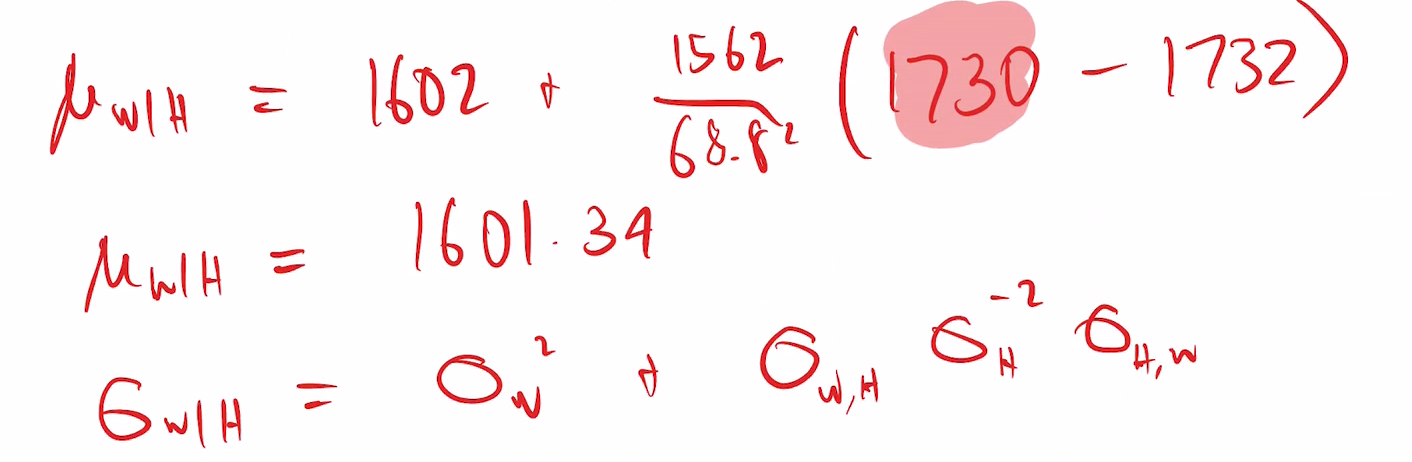 μ_{W|H} = 1602 + \frac{1562}{68.8^2} (1730 - 1732)
μ_{W|H} = 1601.34
σ_{W|H} = σ_W^2 + σ_{W,H} σ_H^{-2} σ_{H,W}